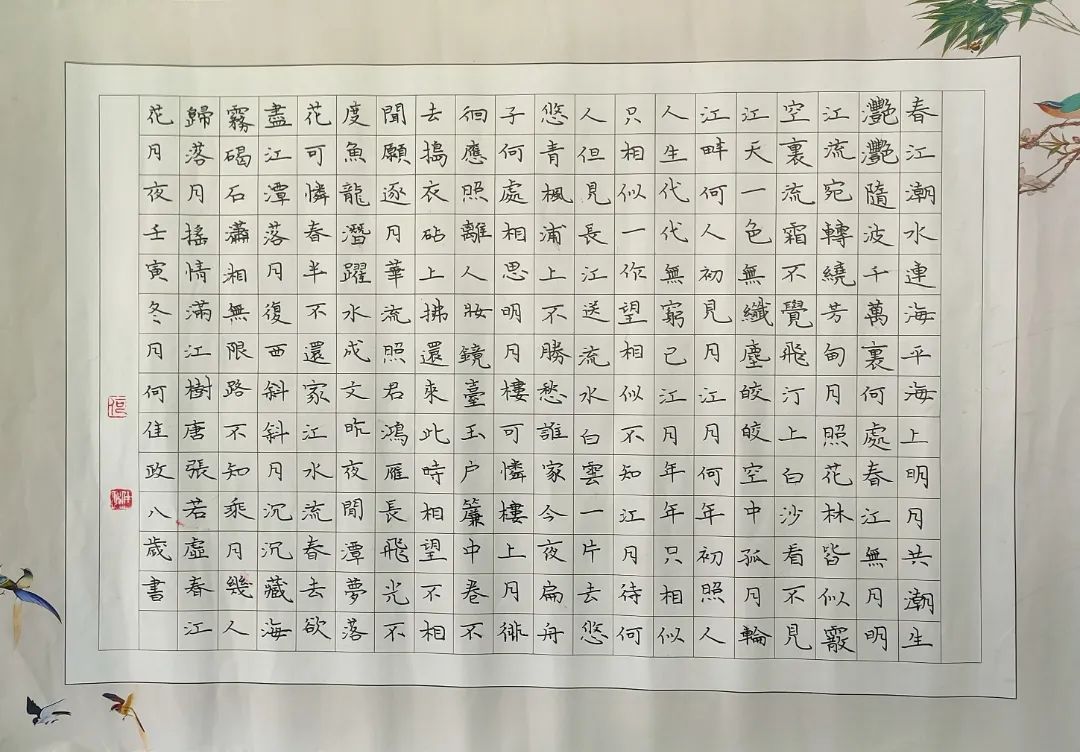 春江潮水連海平海上明月共潮生
灧灧隨波千萬裏何處春江無月明
江流宛轉繞芳甸月照花林皆似霰
空裏流霜不覺飛汀上白沙看不見
江天一色無纖塵皎皎空中孤月輪
江畔何人初見月江月何年初照人
人生代代無窮已江月年年只相似
只相似一你望相似不知江月待何
人但見長江送流水白雲一片去悠
悠青楓浦上不勝愁誰家今夜扁舟
子何處相思明月樓可憐樓上月徘
徊應照離人妝鏡臺玉户簾中卷不
去搗衣砧上拂還來此時相望不相
聞願逐月華流照君鴻雁長飛光不
度魚龍潛躍水成文昨夜閒潭夢落
花可憐春半不還家江水流春去欲
盡江潭落月復西斜斜月沉沉藏海
霧碣石瀟湘無限路不知乘月幾人
歸落月搖情滿江樹唐張若虛春江
花月夜壬寅冬月何佳政八歲書